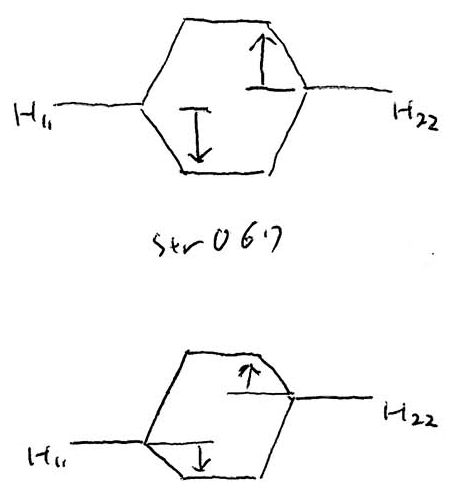 H₁₁ H₂₂
str 0 6.7
H₁₁ H₂₂